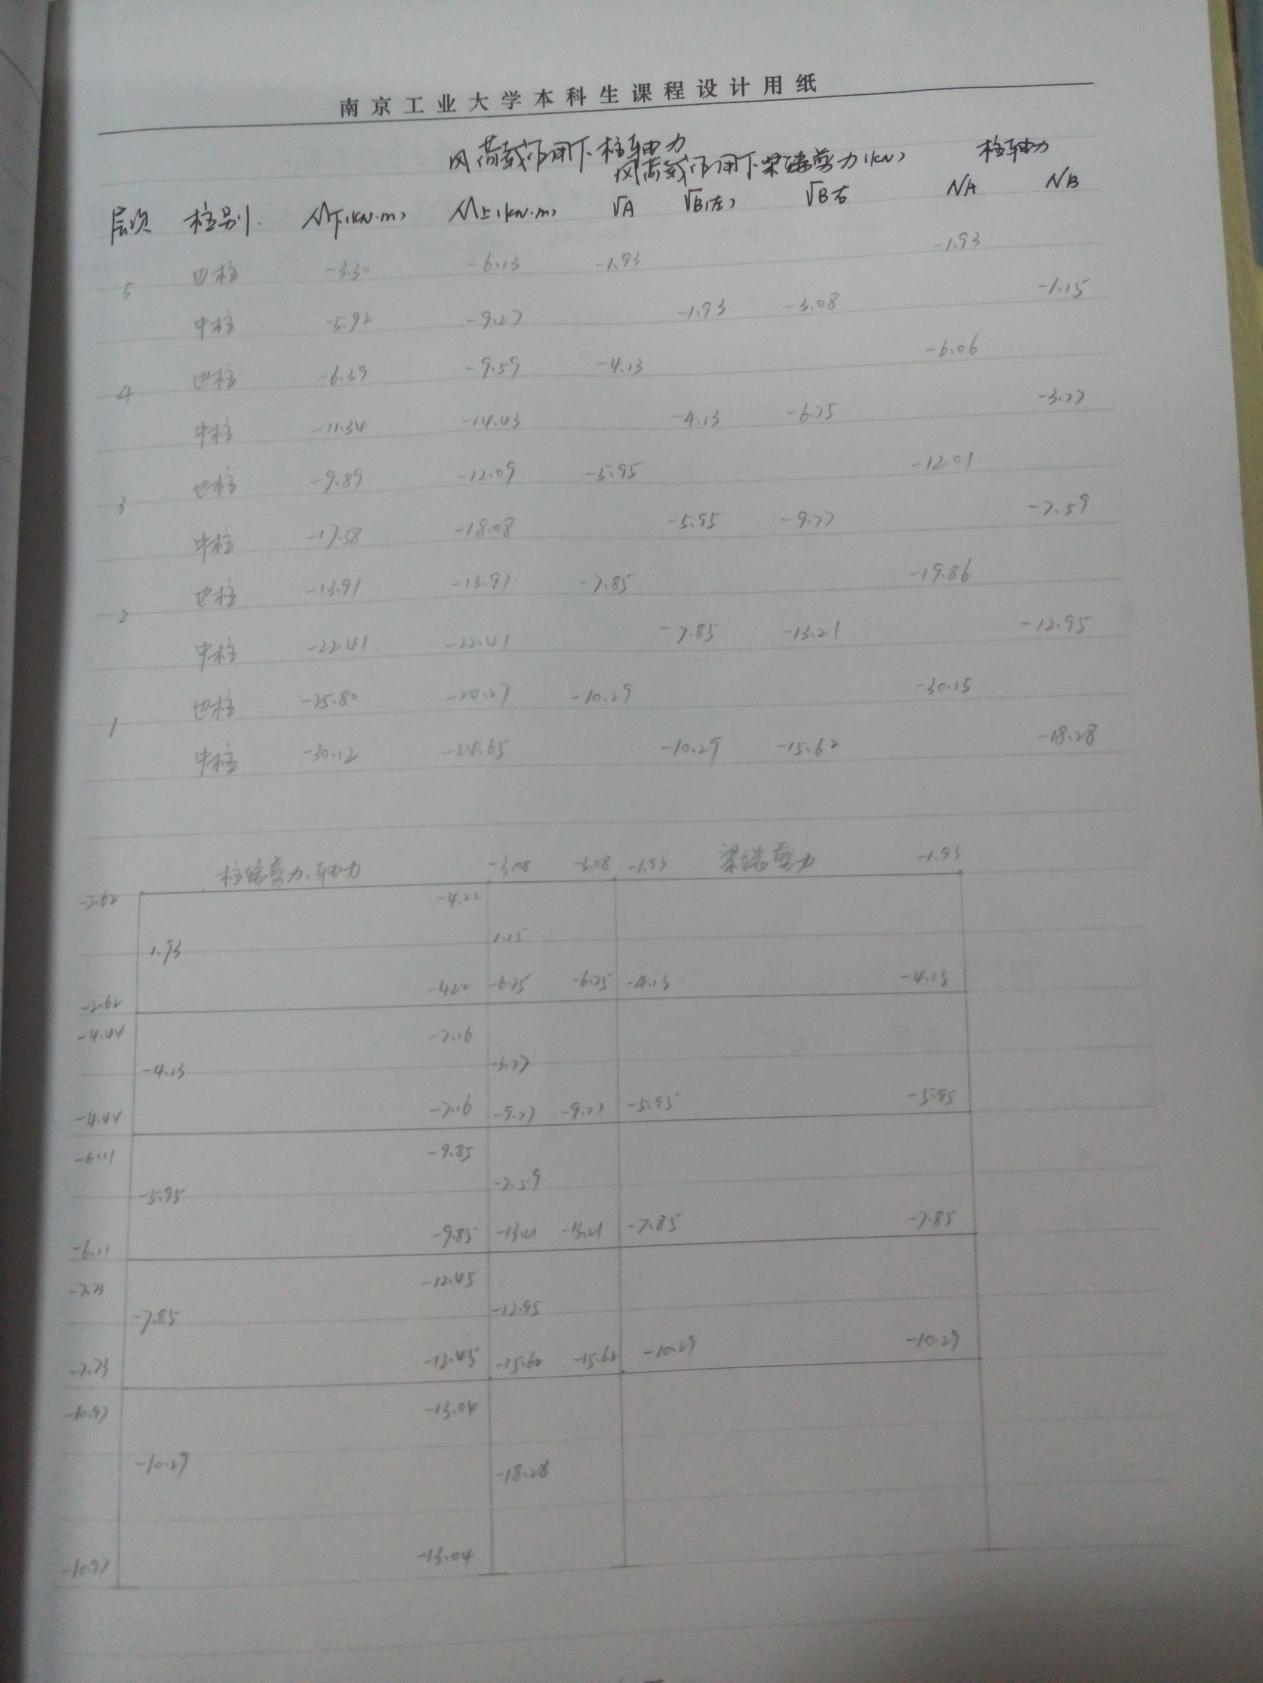 南京工业大学本科生课程设计用纸
风荷载作用下柱轴力
风荷载作用下梁端剪力(kN) 柱轴力
层次 柱别 M下(kN·m) M上(kN·m) VA VB(左) VB右 NA NB
5 边柱 -3.30 -6.13 -1.93 -1.93
中柱 -5.92 -9.27 -1.93 -3.08 -1.15
4 边柱 -6.39 -9.59 -4.13 -6.06
中柱 -11.34 -14.43 -4.13 -6.75 -3.77
3 边柱 -9.89 -12.09 -5.95 -12.01
中柱 -17.58 -18.08 -5.95 -9.77 -7.59
2 边柱 -13.91 -13.91 -7.85 -19.86
中柱 -22.41 -22.41 -7.85 -13.21 -12.95
1 边柱 -25.80 -20.27 -10.29 -30.15
中柱 -30.12 -24.65 -10.29 -15.62 -18.28
柱端剪力、轴力 -3.08 -3.08 -1.93 梁端剪力 -1.93
-2.62 -4.22
1.93 1.15
-2.62 -4.22 -6.75 -6.75 -4.13 -4.13
-4.44 -7.16
-4.13 -3.77
-4.44 -7.16 -9.77 -9.77 -5.95 -5.95
-6.11 -9.85
-5.95 -7.59
-6.11 -9.85 -13.21 -13.21 -7.85 -7.85
-7.73 -12.45
-7.85 -12.95
-7.73 -12.45 -15.62 -15.62 -10.29 -10.29
-10.97 -13.04
-10.29 -18.28
-10.97 -13.04